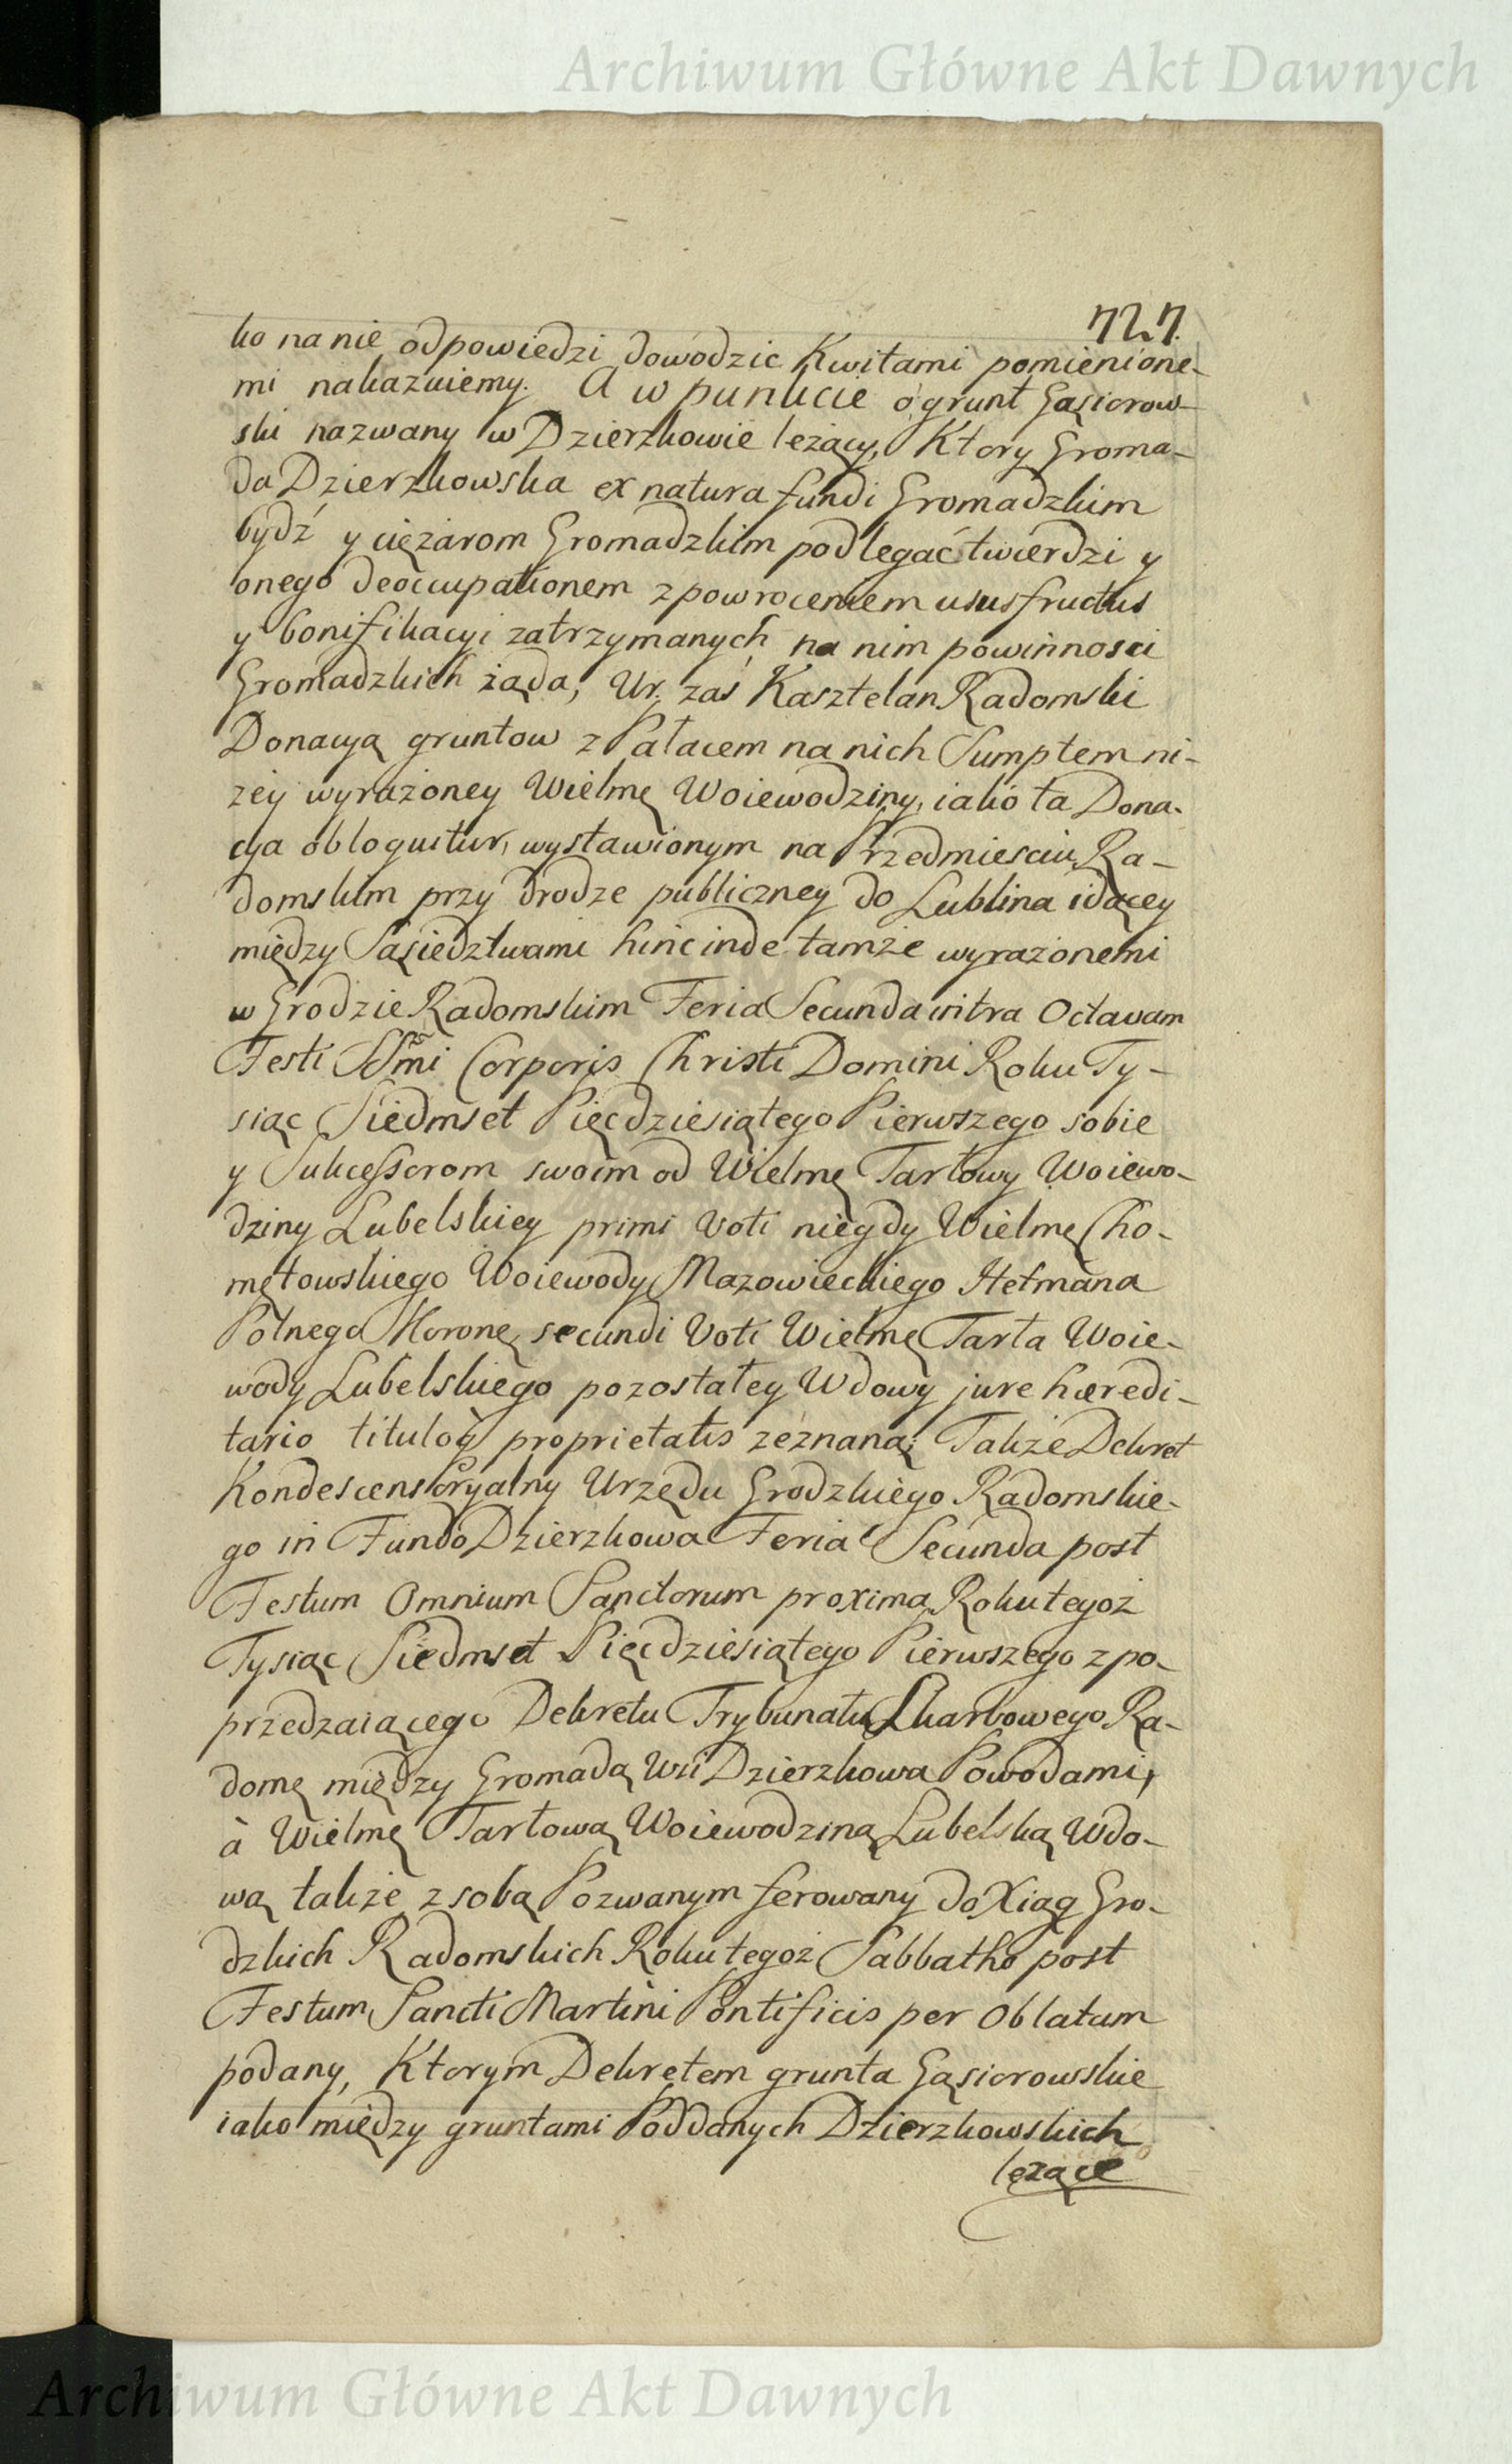 Archiwum Główne Akt Dawnych
727.
ko na nie odpowiedzi dowodzic Kwitami pomienione-
mi nakazuiemy. A w punkcie o grunt Gąsiorow-
ski nazwany w Dzierzkowie leżący, Ktory Groma-
da Dzierzkowska ex natura fundi Gromadzkim
bydź y ciężarom Gromadzkim podlegać twierdzi y
onego deoccupationem z powroceniem ususfructus
y bonifikacyi zatrzymanych na nim powinnosci
Gromadzkich żąda, Ur. zaś Kasztelan Radomski
Donacyą gruntow z Pałacem na nich Sumptem ni-
zey wyrażoney Wielmę Woiewodziny, iako ta Dona-
cya obloquitur, wystawionym na Przedmiesciu Ra-
domskim przy drodze publiczney do Lublina idącey
między Sąsiedztwami hinc inde tamże wyrażonemi
w Grodzie Radomskim Feria Secunda intra Octavam
Festi SSmi Corporis Christi Domini Roku Ty-
siąc Siedmset Pięcdziesiątego Pierwszego sobie
y Sukcessorom swoim od Wielmę Tarłowy Woiewo-
dziny Lubelskiey primi Voti niegdy Wielmę Cho-
mętowskiego Woiewody Mazowieckiego Hetmana
Polnego Koronę secundi Voti Wielmę Tarła Woie-
wody Lubelskiego pozostałey Wdowy jure hæredi-
tario tituloq proprietatis zeznaną; Także Dekret
Kondescensoryalny Urzędu Grodzkiego Radomskie-
go in Fundo Dzierzkowa Feria Secunda post
Festum Omnium Sanctorum proxima Roku tegoż
Tysiąc Siedmset Pięcdziesiątego Pierwszego z po-
przedzaiącego Dekretu Trybunału Skarbowego Ra-
domę między Gromadą Wsi Dzierzkowa Powodami,
à Wielmę Tarłową Woiewodziną Lubelską Wdo-
wą także z sobą Pozwanym ferowany do Xiąg Gro-
dzkich Radomskich Roku tegoż Sabbatho post
Festum Sancti Martini Pontificis per Oblatam
podany, Ktorym Dekretem grunta Gąsiorowskie
iako między gruntami Poddanych Dzierzkowskich
leżące
Archiwum Główne Akt Dawnych